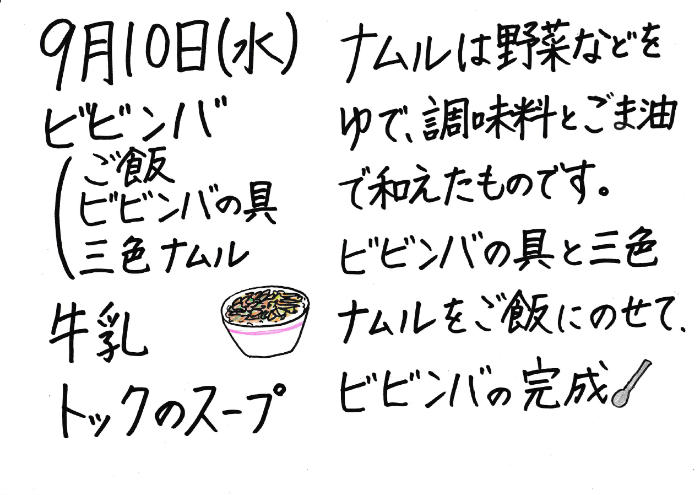 9月10日(水)
ビビンバ
ご飯
ビビンバの具
三色ナムル
牛乳
トックのスープ
ナムルは野菜などを
ゆで、調味料とごま油
で和えたものです。
ビビンバの具と三色
ナムルをご飯にのせて、
ビビンバの完成